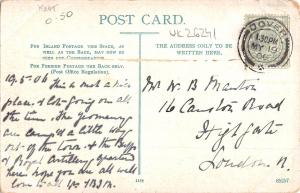 Kent
0.50
UK26241
POST CARD.
FOR INLAND POSTAGE THIS SPACE, AS
WELL AS THE BACK, MAY NOW BE
USED FOR COMMUNICATION.
FOR FOREIGN POSTAGE THE BACK ONLY.
(Post Office Regulation).
THE ADDRESS ONLY TO BE
WRITTEN HERE.
DOVER
1.30PM
MY 19
06
19.5.06 This is not a nice
place: a lot going on all
the time. The Yeomanry
are camped a little way
out of the town & the Buffs
& Royal Artillery quartered
here hope you are all well
love to all
Mr W. B.
16
Highgate
London N.